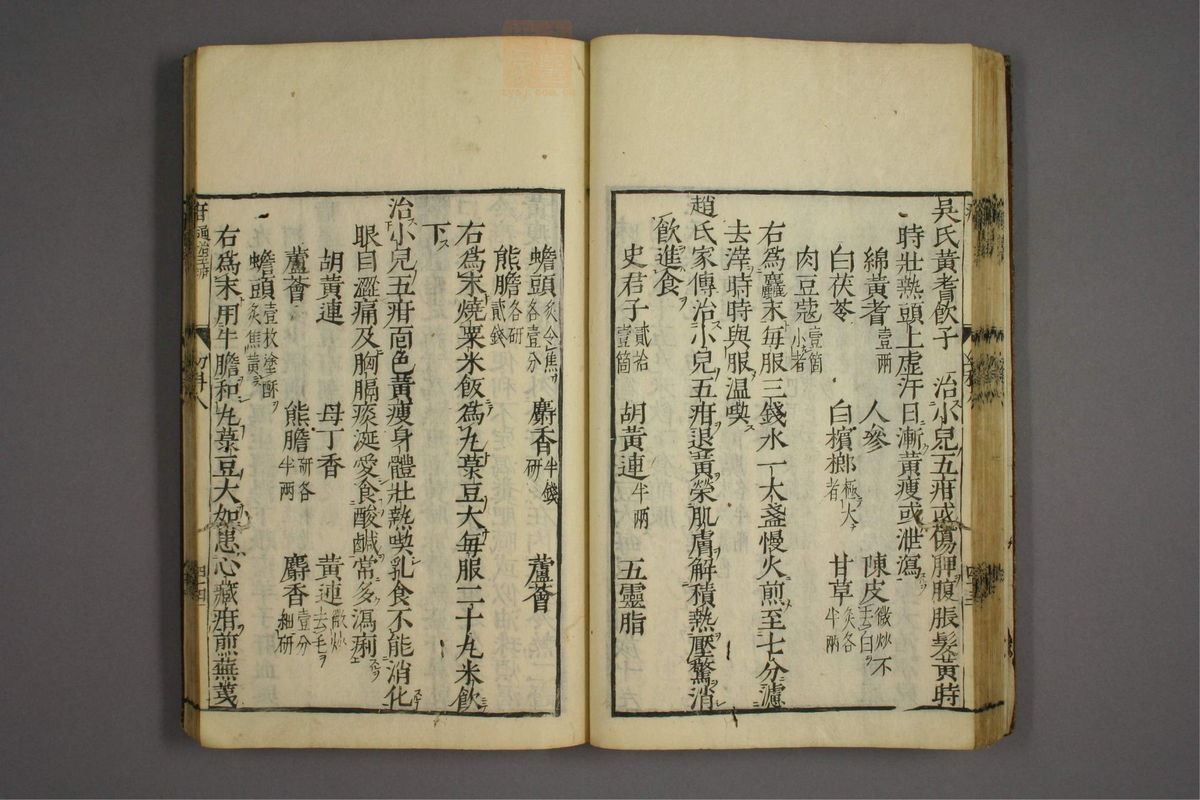 吳氏黃耆飲子 治小兒五疳或傷脾腹脹髮黃時
時壯熱頭上虛汗日漸黃瘦或泄瀉
綿黃耆壹兩 人參 陳皮微炒不去白
白茯苓 白檳榔極大者 甘草炙各半兩
肉豆蔻壹箇小者
右為麤末每服三錢水一大盞慢火煎至七分濾
去滓時時與服温喫
趙氏家傳治小兒五疳退黃榮肌膚解積熱壓驚消
飲進食
史君子貳拾壹箇 胡黃連半兩 五靈脂
蟾頭炙令焦各壹分 麝香半錢研 蘆薈
熊膽各研貳錢
右為末燒粟米飯為丸菉豆大每服二十九米飲
下
治小兒五疳面色黃瘦身體壯熱喫乳食不能消化
眼目澀痛及胸膈痰涎愛食酸鹹常多瀉痢
胡黃連 母丁香 黃連微炒去毛
蘆薈 熊膽研各半兩 麝香壹分細研
蟾頭壹枚塗酥炙焦黃
右為末用牛膽和丸菉豆大如患心藏疳煎蕪荑